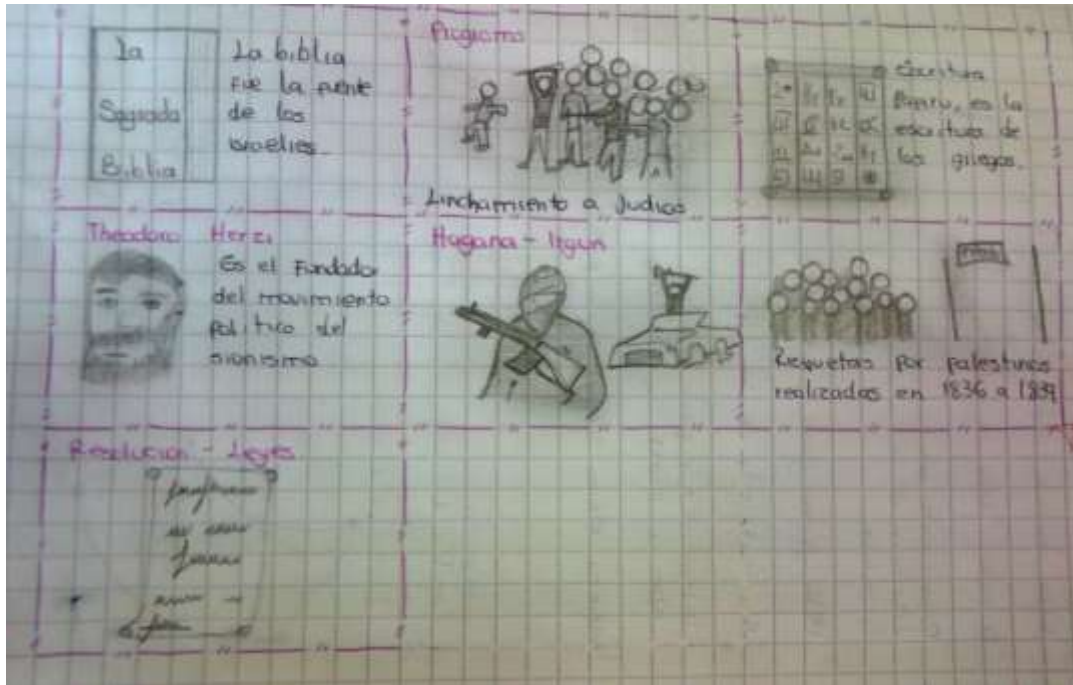 La
Sagrada
Biblia
La biblia
fue la fuente
de los
israelies.
Linchamiento a Judios
Escritura
es la
escritura de
los griegos.
Theodoro Herzl
Es el Fundador
del movimiento
politico del
sionismo
Hagana - Irgun
por palestinos
realizadas en 1836 a 1839
Resolución - Leyes